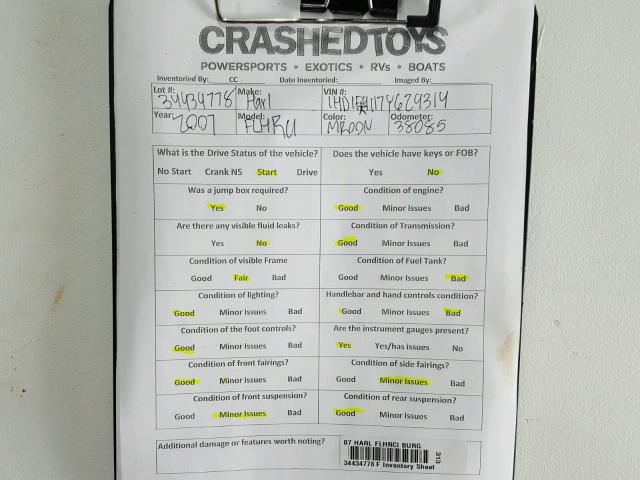 CRASHEDTOYS
POWERSPORTS • EXOTICS • RVs • BOATS
Inventoried By: CC Date Inventoried: Imaged By:
Lot #: 34434778 Make: Harl VIN #:
Year: 2007 Model: Color: MROON Odometer: 38085
What is the Drive Status of the vehicle? Does the vehicle have keys or FOB?
No Start Crank NS Start Drive Yes No
Was a jump box required? Condition of engine?
Yes No Good Minor Issues Bad
Are there any visible fluid leaks? Condition of Transmission?
Yes No Good Minor Issues Bad
Condition of visible Frame Condition of Fuel Tank?
Good Fair Bad Good Minor Issues Bad
Condition of lighting? Handlebar and hand controls condition?
Good Minor Issues Bad Good Minor Issues Bad
Condition of the foot controls? Are the instrument gauges present?
Good Minor Issues Bad Yes Yes/has issues No
Condition of front fairings? Condition of side fairings?
Good Minor Issues Bad Good Minor Issues Bad
Condition of front suspension? Condition of rear suspension?
Good Minor Issues Bad Good Minor Issues Bad
Additional damage or features worth noting?
07 HARL FLHRCI BURG
313
34434778 F Inventory Sheet